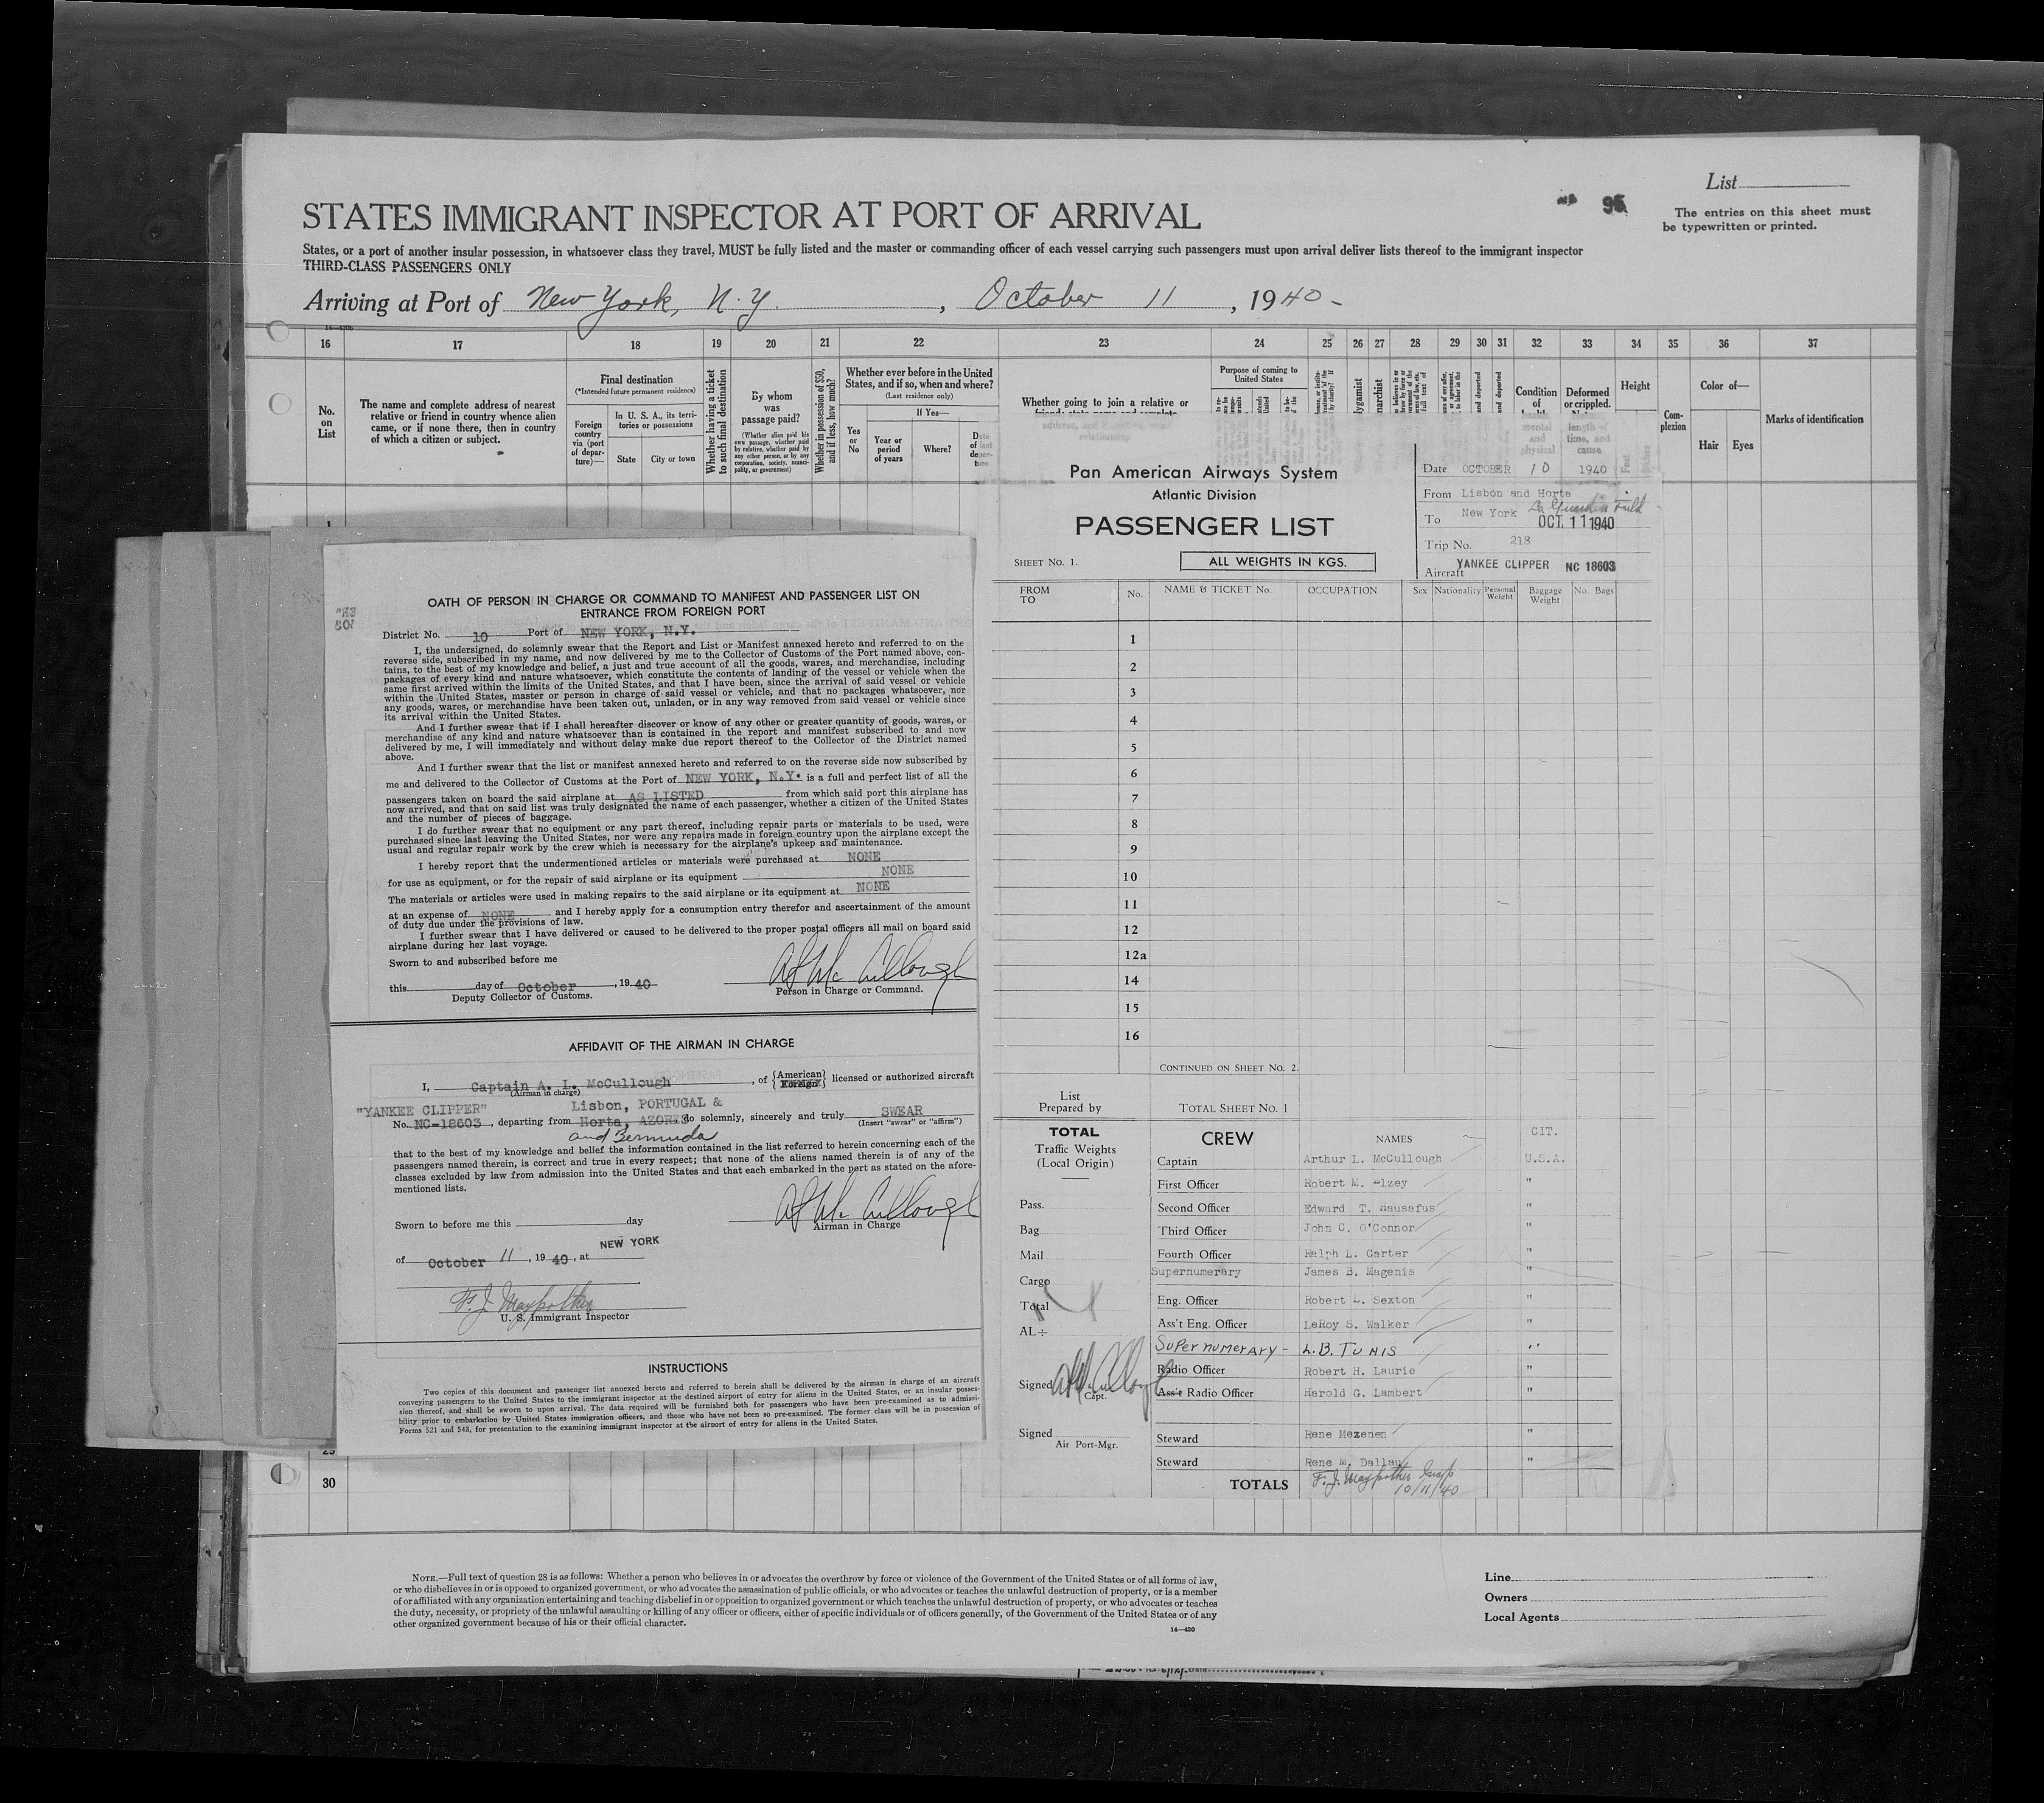 List
95
The entries on this sheet must
be typewritten or printed.
STATES IMMIGRANT INSPECTOR AT PORT OF ARRIVAL
States, or a port of another insular possession, in whatsoever class they travel, MUST be fully listed and the master or commanding officer of each vessel carrying such passengers must upon arrival deliver lists thereof to the immigrant inspector
THIRD-CLASS PASSENGERS ONLY
Arriving at Port of New York, N.Y. , October 11 , 1940-
16 17 18 19 20 21 22 23 24 25 26 27 28 29 30 31 32 33 34 35 36 37
No.
on
List
The name and complete address of nearest
relative or friend in country whence alien
came, or if none there, then in country
of which a citizen or subject.
Final destination
(*Intended future permanent residence)
Foreign
country
via (port
of depar-
ture)—
In U. S. A., its terri-
tories or possessions
State
City or town
Whether having a ticket
to such final destination
By whom
was
passage paid?
(Whether alien paid his
own passage, whether paid
by relative, whether paid
by any other person, or by any
corporation, society, munici-
pality, or government)
Whether in possession of $50,
and if less, how much?
Whether ever before in the United
States, and if so, when and where?
(Last residence only)
If Yes—
Yes
or
No
Year or
period
of years
Where?
Date
of last
depar-
ture
Whether going to join a relative or
Purpose of coming to
United States
Condition
of
mental
and
physical
Deformed
or crippled.
length of
time, and
cause
Height
Com-
plexion
Color of—
Hair
Eyes
Marks of identification
1
30
Pan American Airways System
Atlantic Division
PASSENGER LIST
SHEET No. 1.
ALL WEIGHTS IN KGS.
Date OCTOBER 10 1940
From Lisbon and Horta
To New York La Guardia Field
OCT 11 1940
Trip No. 218
Aircraft YANKEE CLIPPER NC 18603
FROM
TO
No.
NAME & TICKET No.
OCCUPATION
Sex
Nationality
Personal
Weight
Baggage
Weight
No. Bags
1
2
3
4
5
6
7
8
9
10
11
12
12a
14
15
16
CONTINUED ON SHEET No. 2.
List
Prepared by
TOTAL SHEET No. 1
TOTAL
Traffic Weights
(Local Origin)
Pass.
Bag
Mail
Cargo
Total
AL÷
Signed
Capt.
Signed
Air Port-Mgr.
CREW NAMES CIT.
Captain Arthur L. McCullough U.S.A.
First Officer Robert M. Elzey "
Second Officer Edward T. Hausafus "
Third Officer John C. O'Connor "
Fourth Officer Ralph L. Carter "
Supernumerary James B. Magenis "
Eng. Officer Robert L. Sexton "
Ass't Eng. Officer LeRoy S. Walker "
Supernumerary - L.B. TUNIS "
Radio Officer Robert H. Laurie "
Ass't Radio Officer Harold G. Lambert "
Steward Rene Mezenen "
Steward Rene M. Dallau "
TOTALS
10/11/40
OATH OF PERSON IN CHARGE OR COMMAND TO MANIFEST AND PASSENGER LIST ON
ENTRANCE FROM FOREIGN PORT
District No. 10 Port of NEW YORK, N.Y.
I, the undersigned, do solemnly swear that the Report and List or Manifest annexed hereto and referred to on the
reverse side, subscribed in my name, and now delivered by me to the Collector of Customs of the Port named above, con-
tains, to the best of my knowledge and belief, a just and true account of all the goods, wares, and merchandise, including
packages of every kind and nature whatsoever, which constitute the contents of landing of the vessel or vehicle when the
same first arrived within the limits of the United States, and that I have been, since the arrival of said vessel or vehicle
within the United States, master or person in charge of said vessel or vehicle, and that no packages whatsoever, nor
any goods, wares, or merchandise have been taken out, unladen, or in any way removed from said vessel or vehicle since
its arrival within the United States.
And I further swear that if I shall hereafter discover or know of any other or greater quantity of goods, wares, or
merchandise of any kind and nature whatsoever than is contained in the report and manifest subscribed to and now
delivered by me, I will immediately and without delay make due report thereof to the Collector of the District named
above.
And I further swear that the list or manifest annexed hereto and referred to on the reverse side now subscribed by
me and delivered to the Collector of Customs at the Port of NEW YORK, N.Y. is a full and perfect list of all the
passengers taken on board the said airplane at AS LISTED from which said port this airplane has
now arrived, and that on said list was truly designated the name of each passenger, whether a citizen of the United States
and the number of pieces of baggage.
I do further swear that no equipment or any part thereof, including repair parts or materials to be used, were
purchased since last leaving the United States, nor were any repairs made in foreign country upon the airplane except the
usual and regular repair work by the crew which is necessary for the airplane's upkeep and maintenance.
I hereby report that the undermentioned articles or materials were purchased at NONE
for use as equipment, or for the repair of said airplane or its equipment NONE
The materials or articles were used in making repairs to the said airplane or its equipment at NONE
at an expense of NONE and I hereby apply for a consumption entry therefor and ascertainment of the amount
of duty due under the provisions of law.
I further swear that I have delivered or caused to be delivered to the proper postal officers all mail on board said
airplane during her last voyage.
Sworn to and subscribed before me
this day of October , 1940
Deputy Collector of Customs.
A L McCullough
Person in Charge or Command.
AFFIDAVIT OF THE AIRMAN IN CHARGE
I, Captain A. L. McCullough , of {American Foreign} licensed or authorized aircraft
(Airman in charge)
"YANKEE CLIPPER" Lisbon, PORTUGAL &
No. NC-18603 , departing from Horta, AZORES do solemnly, sincerely and truly SWEAR
(Insert "swear" or "affirm")
and Bermuda
that to the best of my knowledge and belief the information contained in the list referred to herein concerning each of the
passengers named therein, is correct and true in every respect; that none of the aliens named therein is of any of the
classes excluded by law from admission into the United States and that each embarked in the port as stated on the afore-
mentioned lists.
A L McCullough
Sworn to before me this day
Airman in Charge
of October 11 , 1940 , at NEW YORK
U. S. Immigrant Inspector
INSTRUCTIONS
Two copies of this document and passenger list annexed hereto and referred to herein shall be delivered by the airman in charge of an aircraft
conveying passengers to the United States to the immigrant inspector at the destined airport of entry for aliens in the United States, or an insular posses-
sion thereof, and shall be sworn to upon arrival. The data required will be furnished both for passengers who have been pre-examined as to admissi-
bility prior to embarkation by United States immigration officers, and those who have not been so pre-examined. The former class will be in possession of
Forms 521 and 548, for presentation to the examining immigrant inspector at the airport of entry for aliens in the United States.
NOTE.—Full text of question 28 is as follows: Whether a person who believes in or advocates the overthrow by force or violence of the Government of the United States or of all forms of law,
or who disbelieves in or is opposed to organized government, or who advocates the assassination of public officials, or who advocates or teaches the unlawful destruction of property, or is a member
of or affiliated with any organization entertaining and teaching disbelief in or opposition to organized government or which teaches the unlawful destruction of property, or who advocates or teaches
the duty, necessity, or propriety of the unlawful assaulting or killing of any officer or officers, either of specific individuals or of officers generally, of the Government of the United States or of any
other organized government because of his or their official character.
14—430
Line
Owners
Local Agents